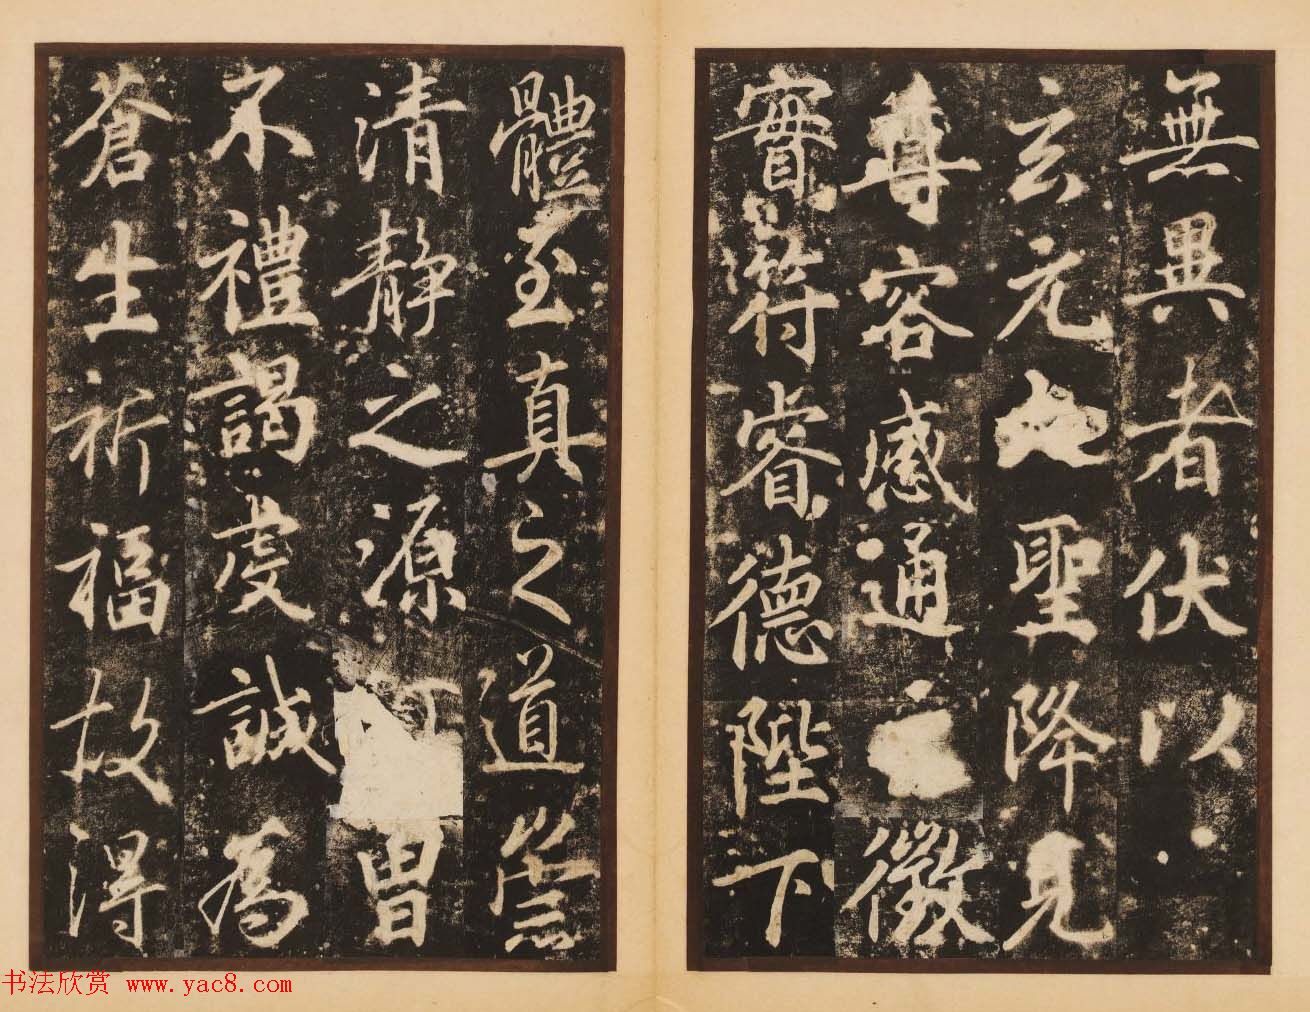 無異者伏以
玄元聖降見
尊容感通徵
寶符睿德陛下
體至真之道崇
清靜之源曾
不禮謁虔誠為
蒼生祈福故得
书法欣赏 www.yac8.com